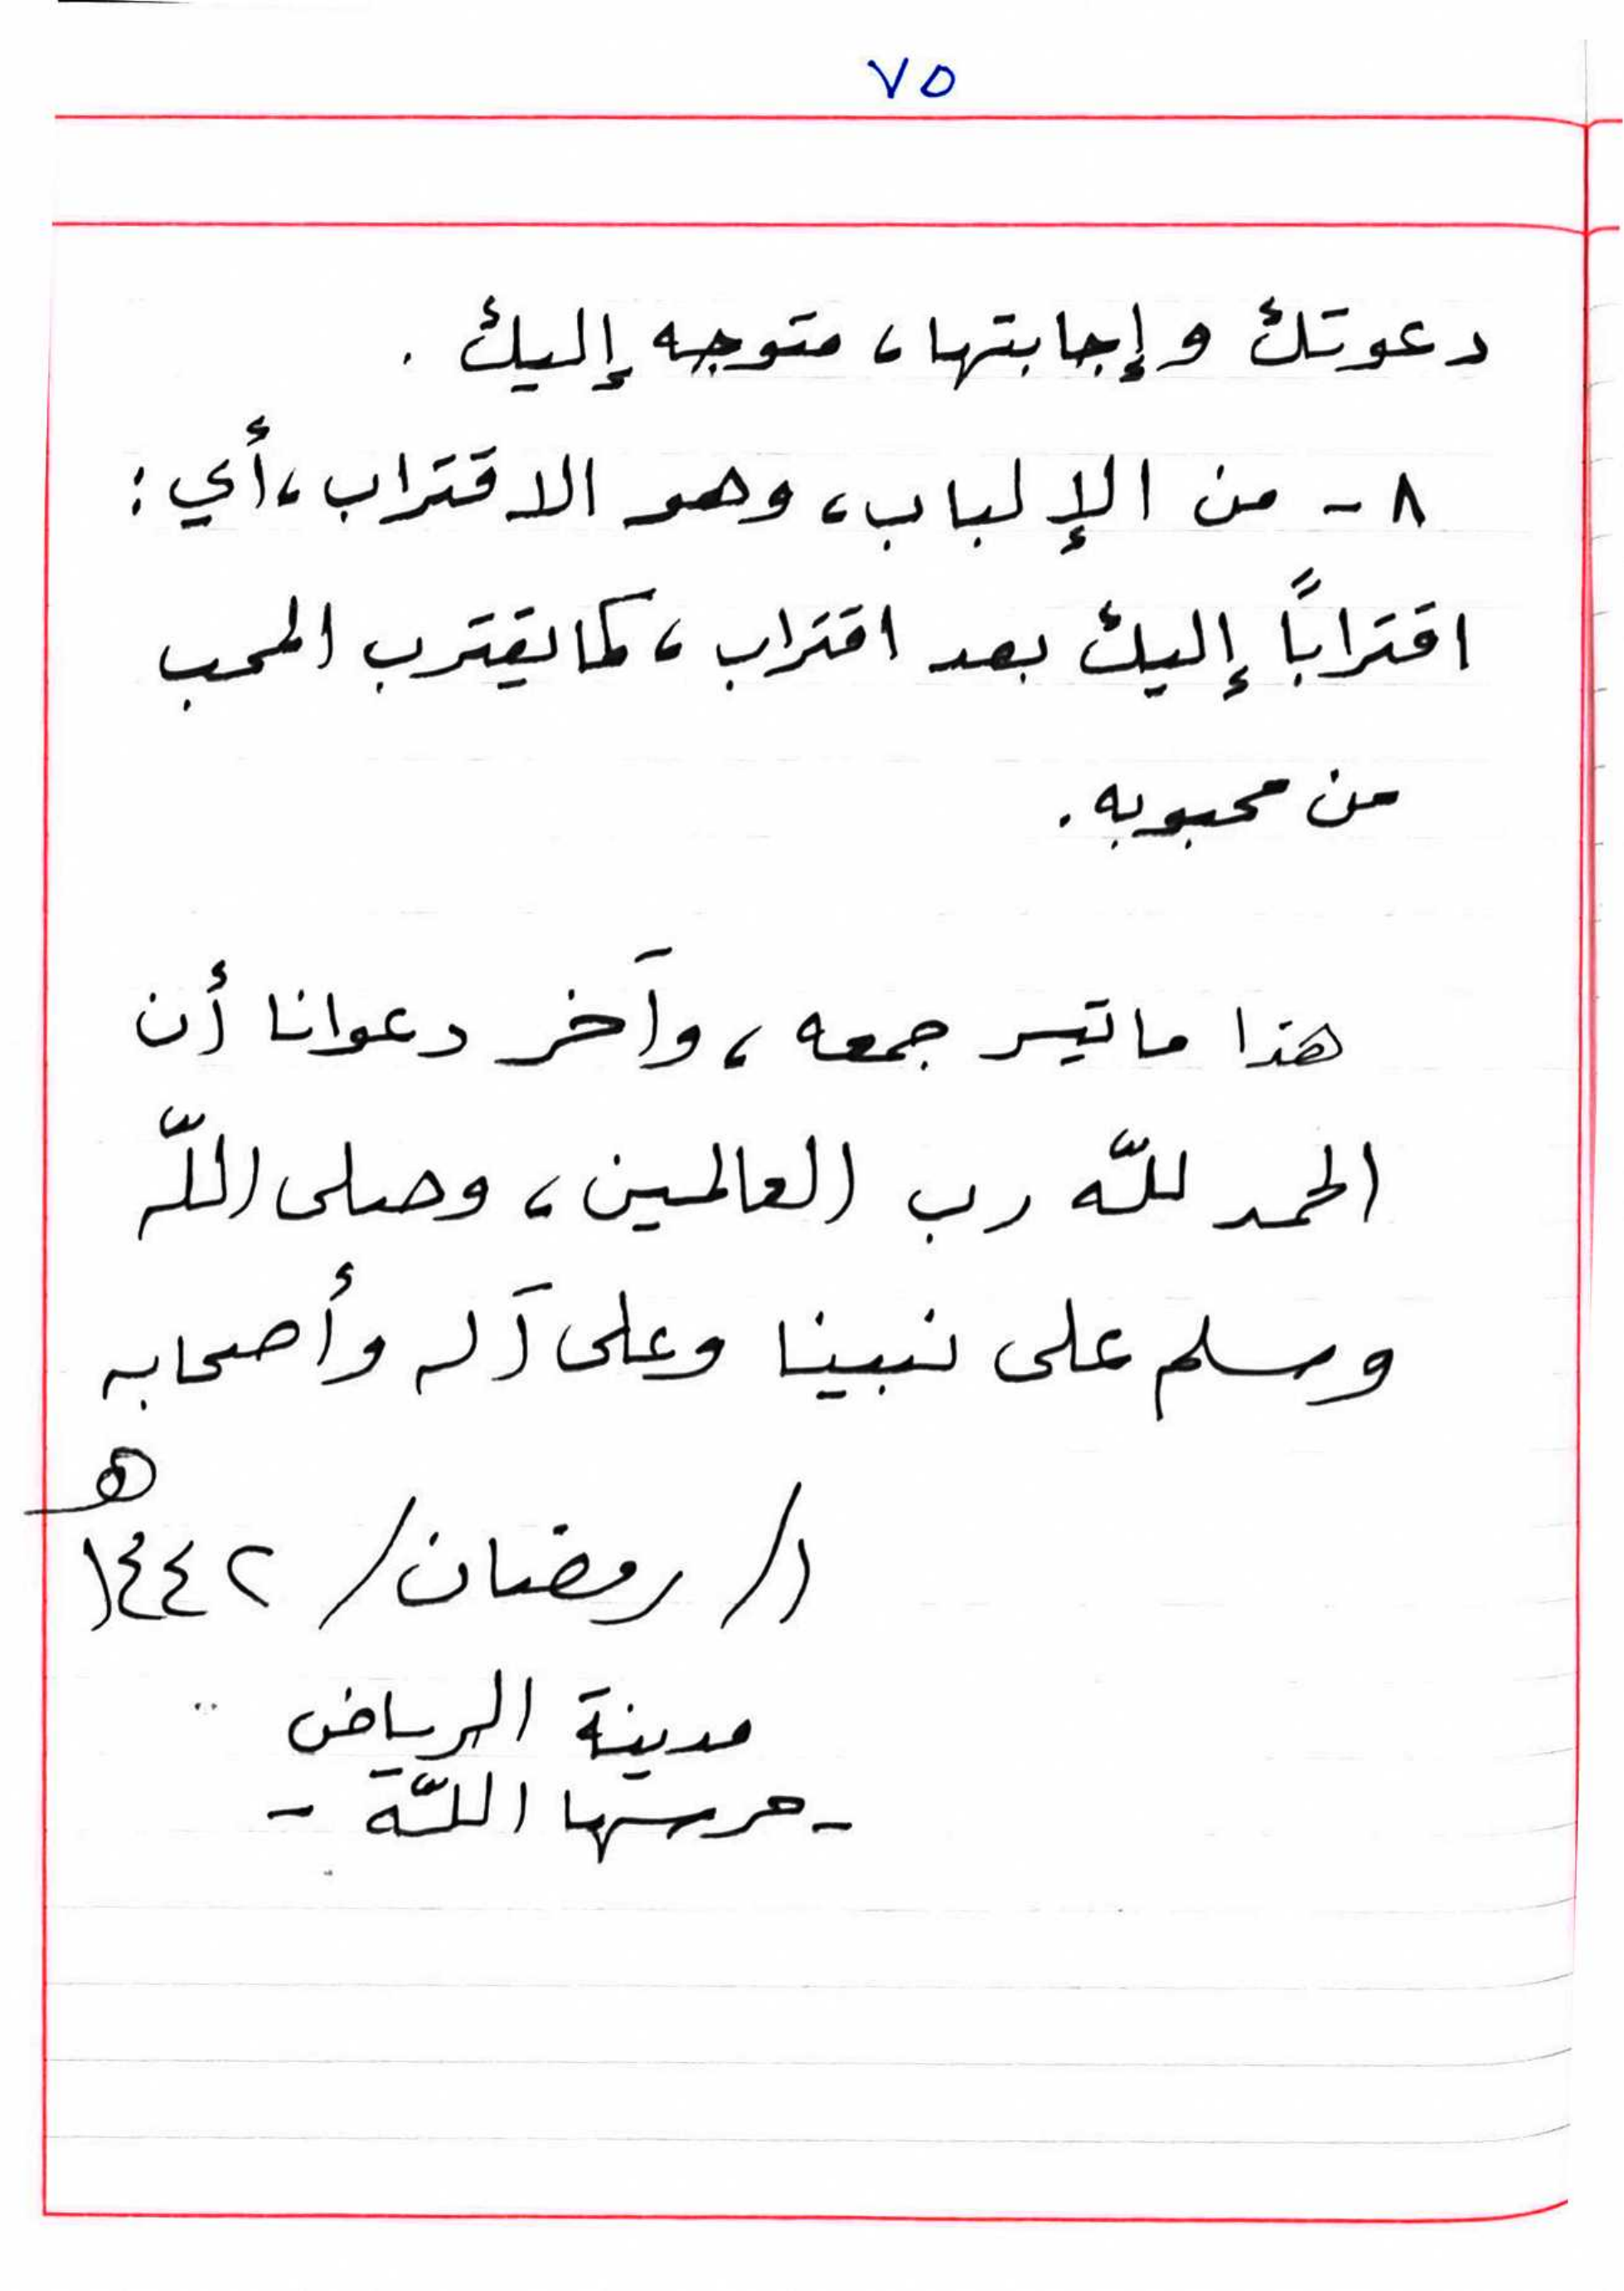 ٧٥
دعوتك وإجابتها، متوجه إليك .
٨ - من الإلباب، وهو الاقتراب، أي :
اقتراباً إليك بعد اقتراب، كما يقترب المحب
من محبوبه .
هذا ما تيسر جمعه، وآخر دعوانا أن
الحمد للّه رب العالمين، وصلى اللّه
وسلم على نبينا وعلى آله وأصحابه
١/ رمضان/ ١٤٤٢هـ
مدينة الرياض
- حرسها اللّه -